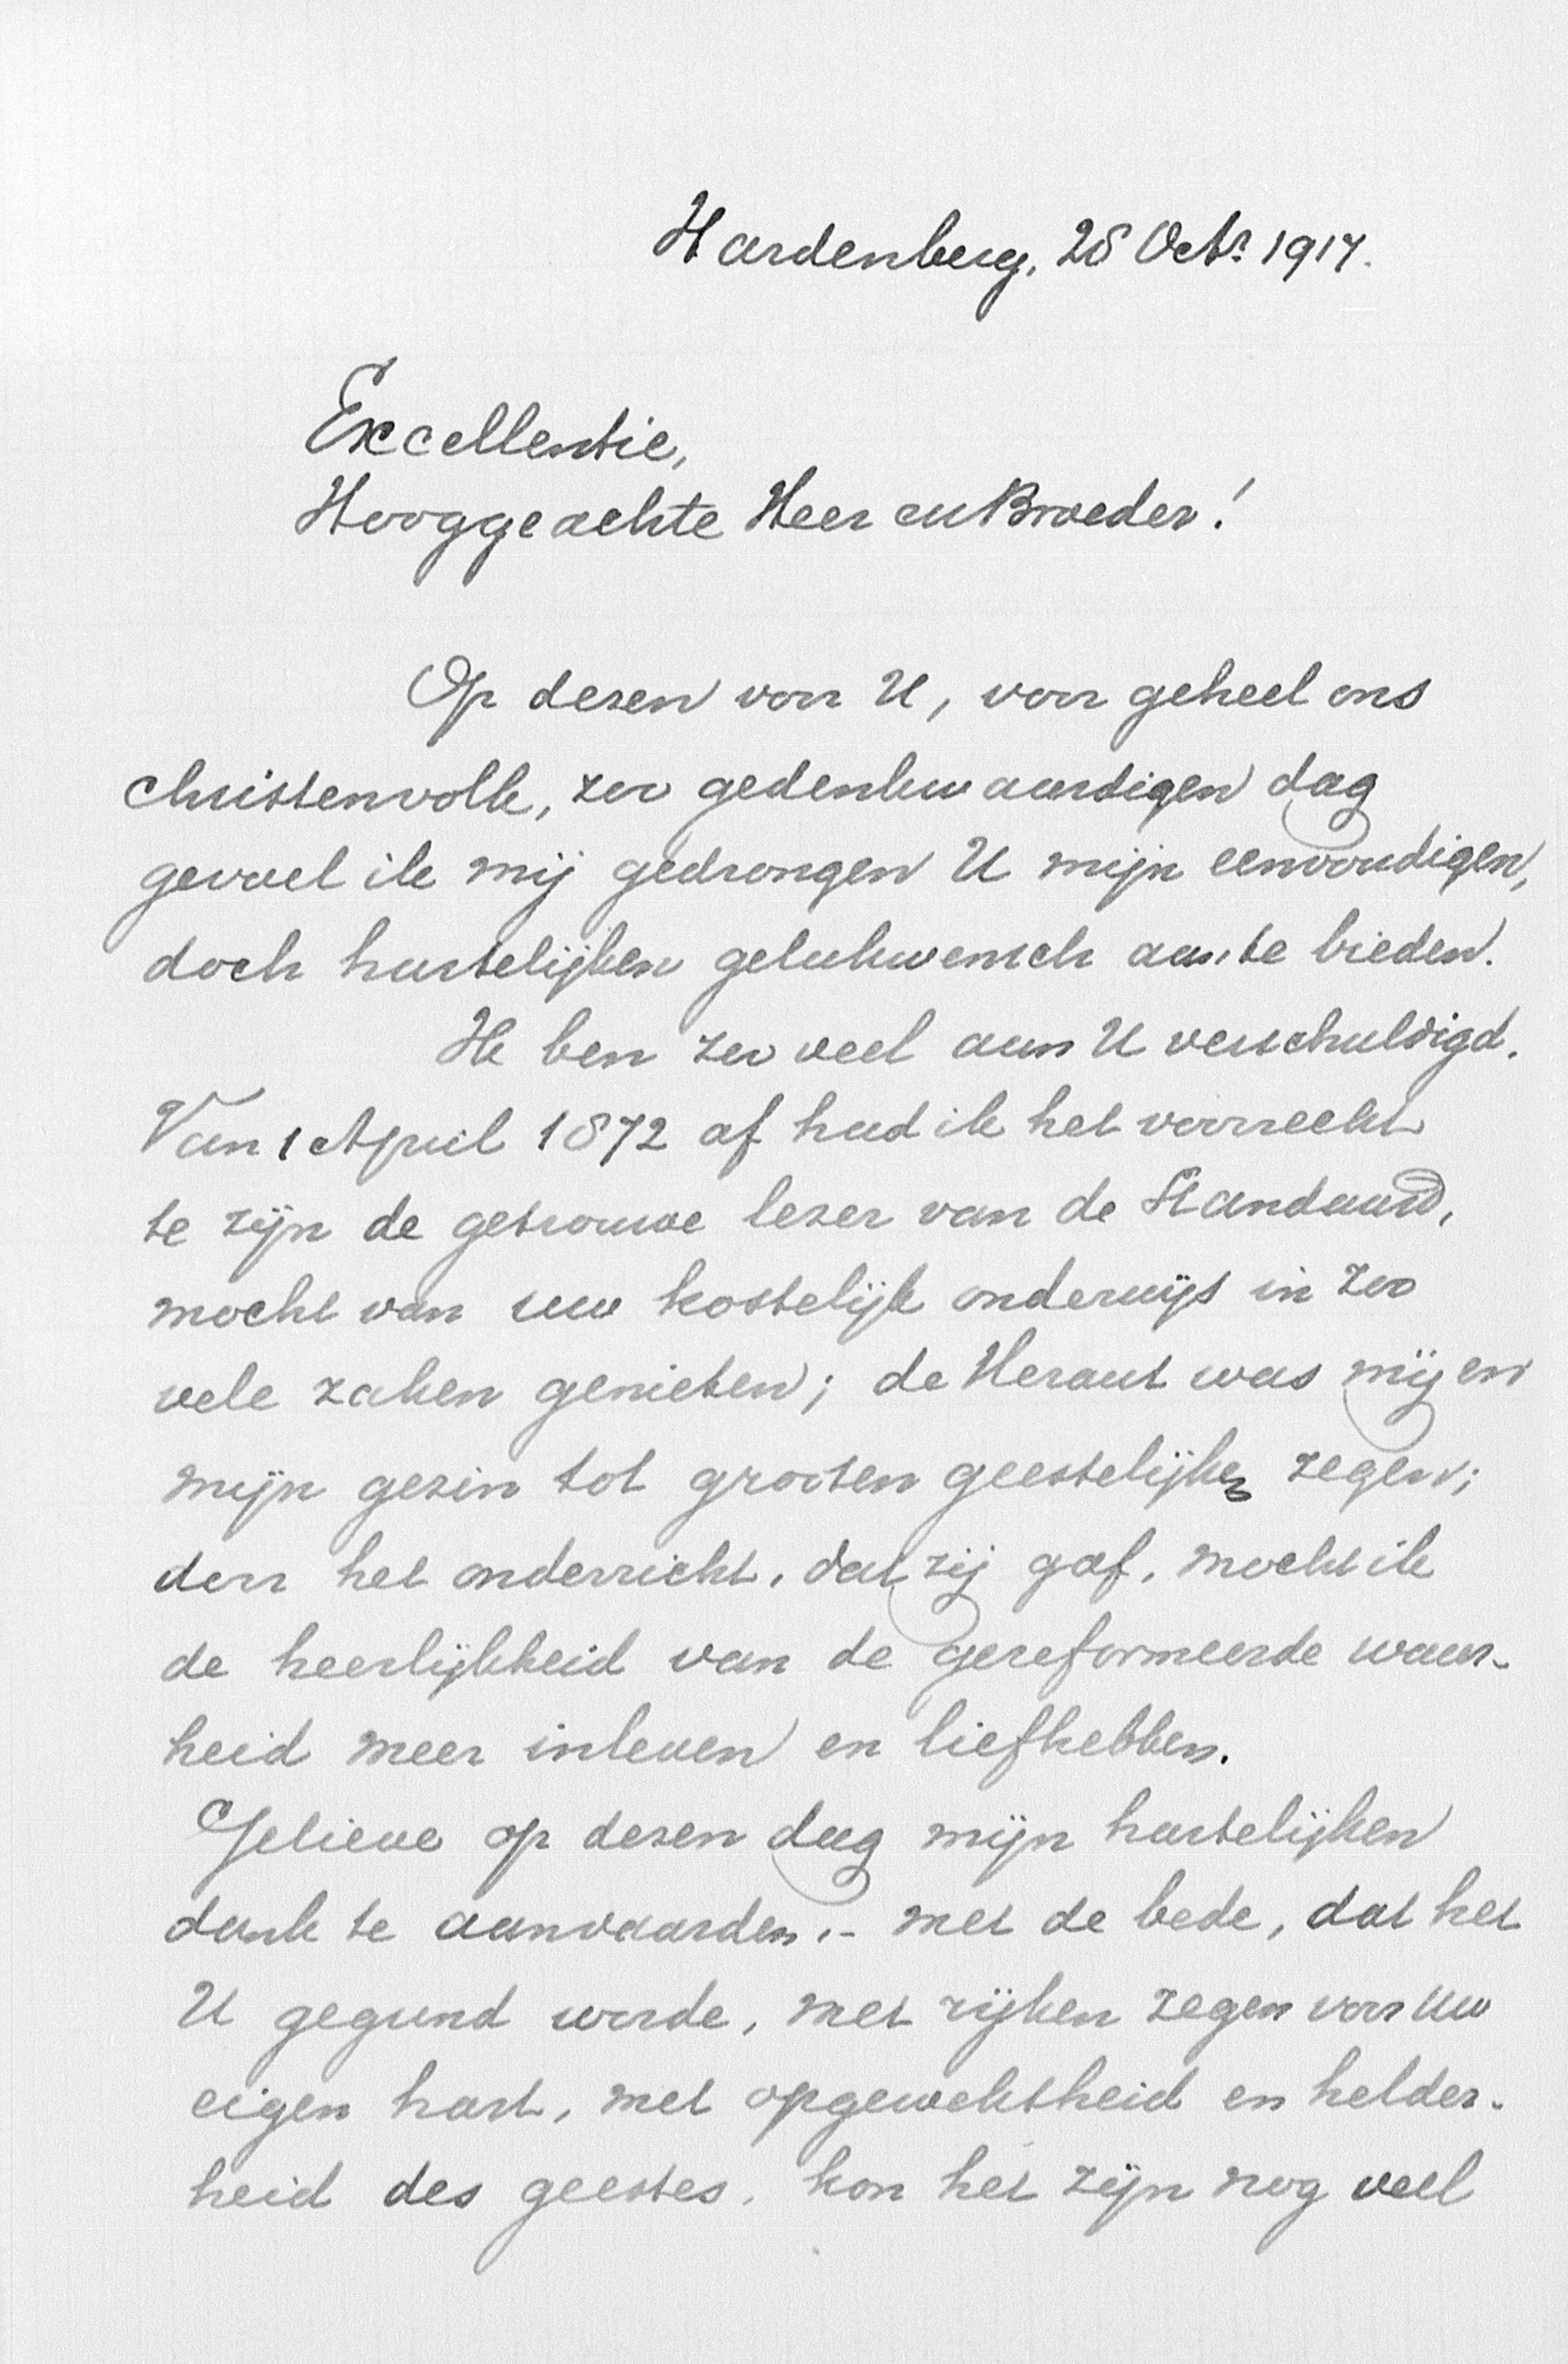 Hardenberg, 28 Octr 1917.
Excellentie,
Hooggeachte Heer en Broeder!
Op dezen voor U, voor geheel ons
christenvolk, zoo gedenkwaardigen dag
gevoel ik mij gedrongen U mijn eenvoudigen,
doch hartelijken gelukwensch aan te bieden.
Ik ben zoo veel aan U verschuldigd.
Van 1 April 1872 af had ik het voorrecht
te zijn de getrouwe lezer van de Standaard,
mocht van uw kostelijk onderwijs in zoo
vele zaken genieten; de Heraut was mij en
mijn gezin tot grooten geestelijken zegen;
door het onderricht, dat zij gaf, mocht ik
de heerlijkheid van de gereformeerde waar-
heid meer inleven en liefhebben.
Gelieve op dezen dag mijn hartelijken
dank te aanvaarden,- met de bede, dat het
U gegund worde, met rijken zegen voor uw
eigen hart, met opgewektheid en helder-
heid des geestes, kon het zijn nog veel